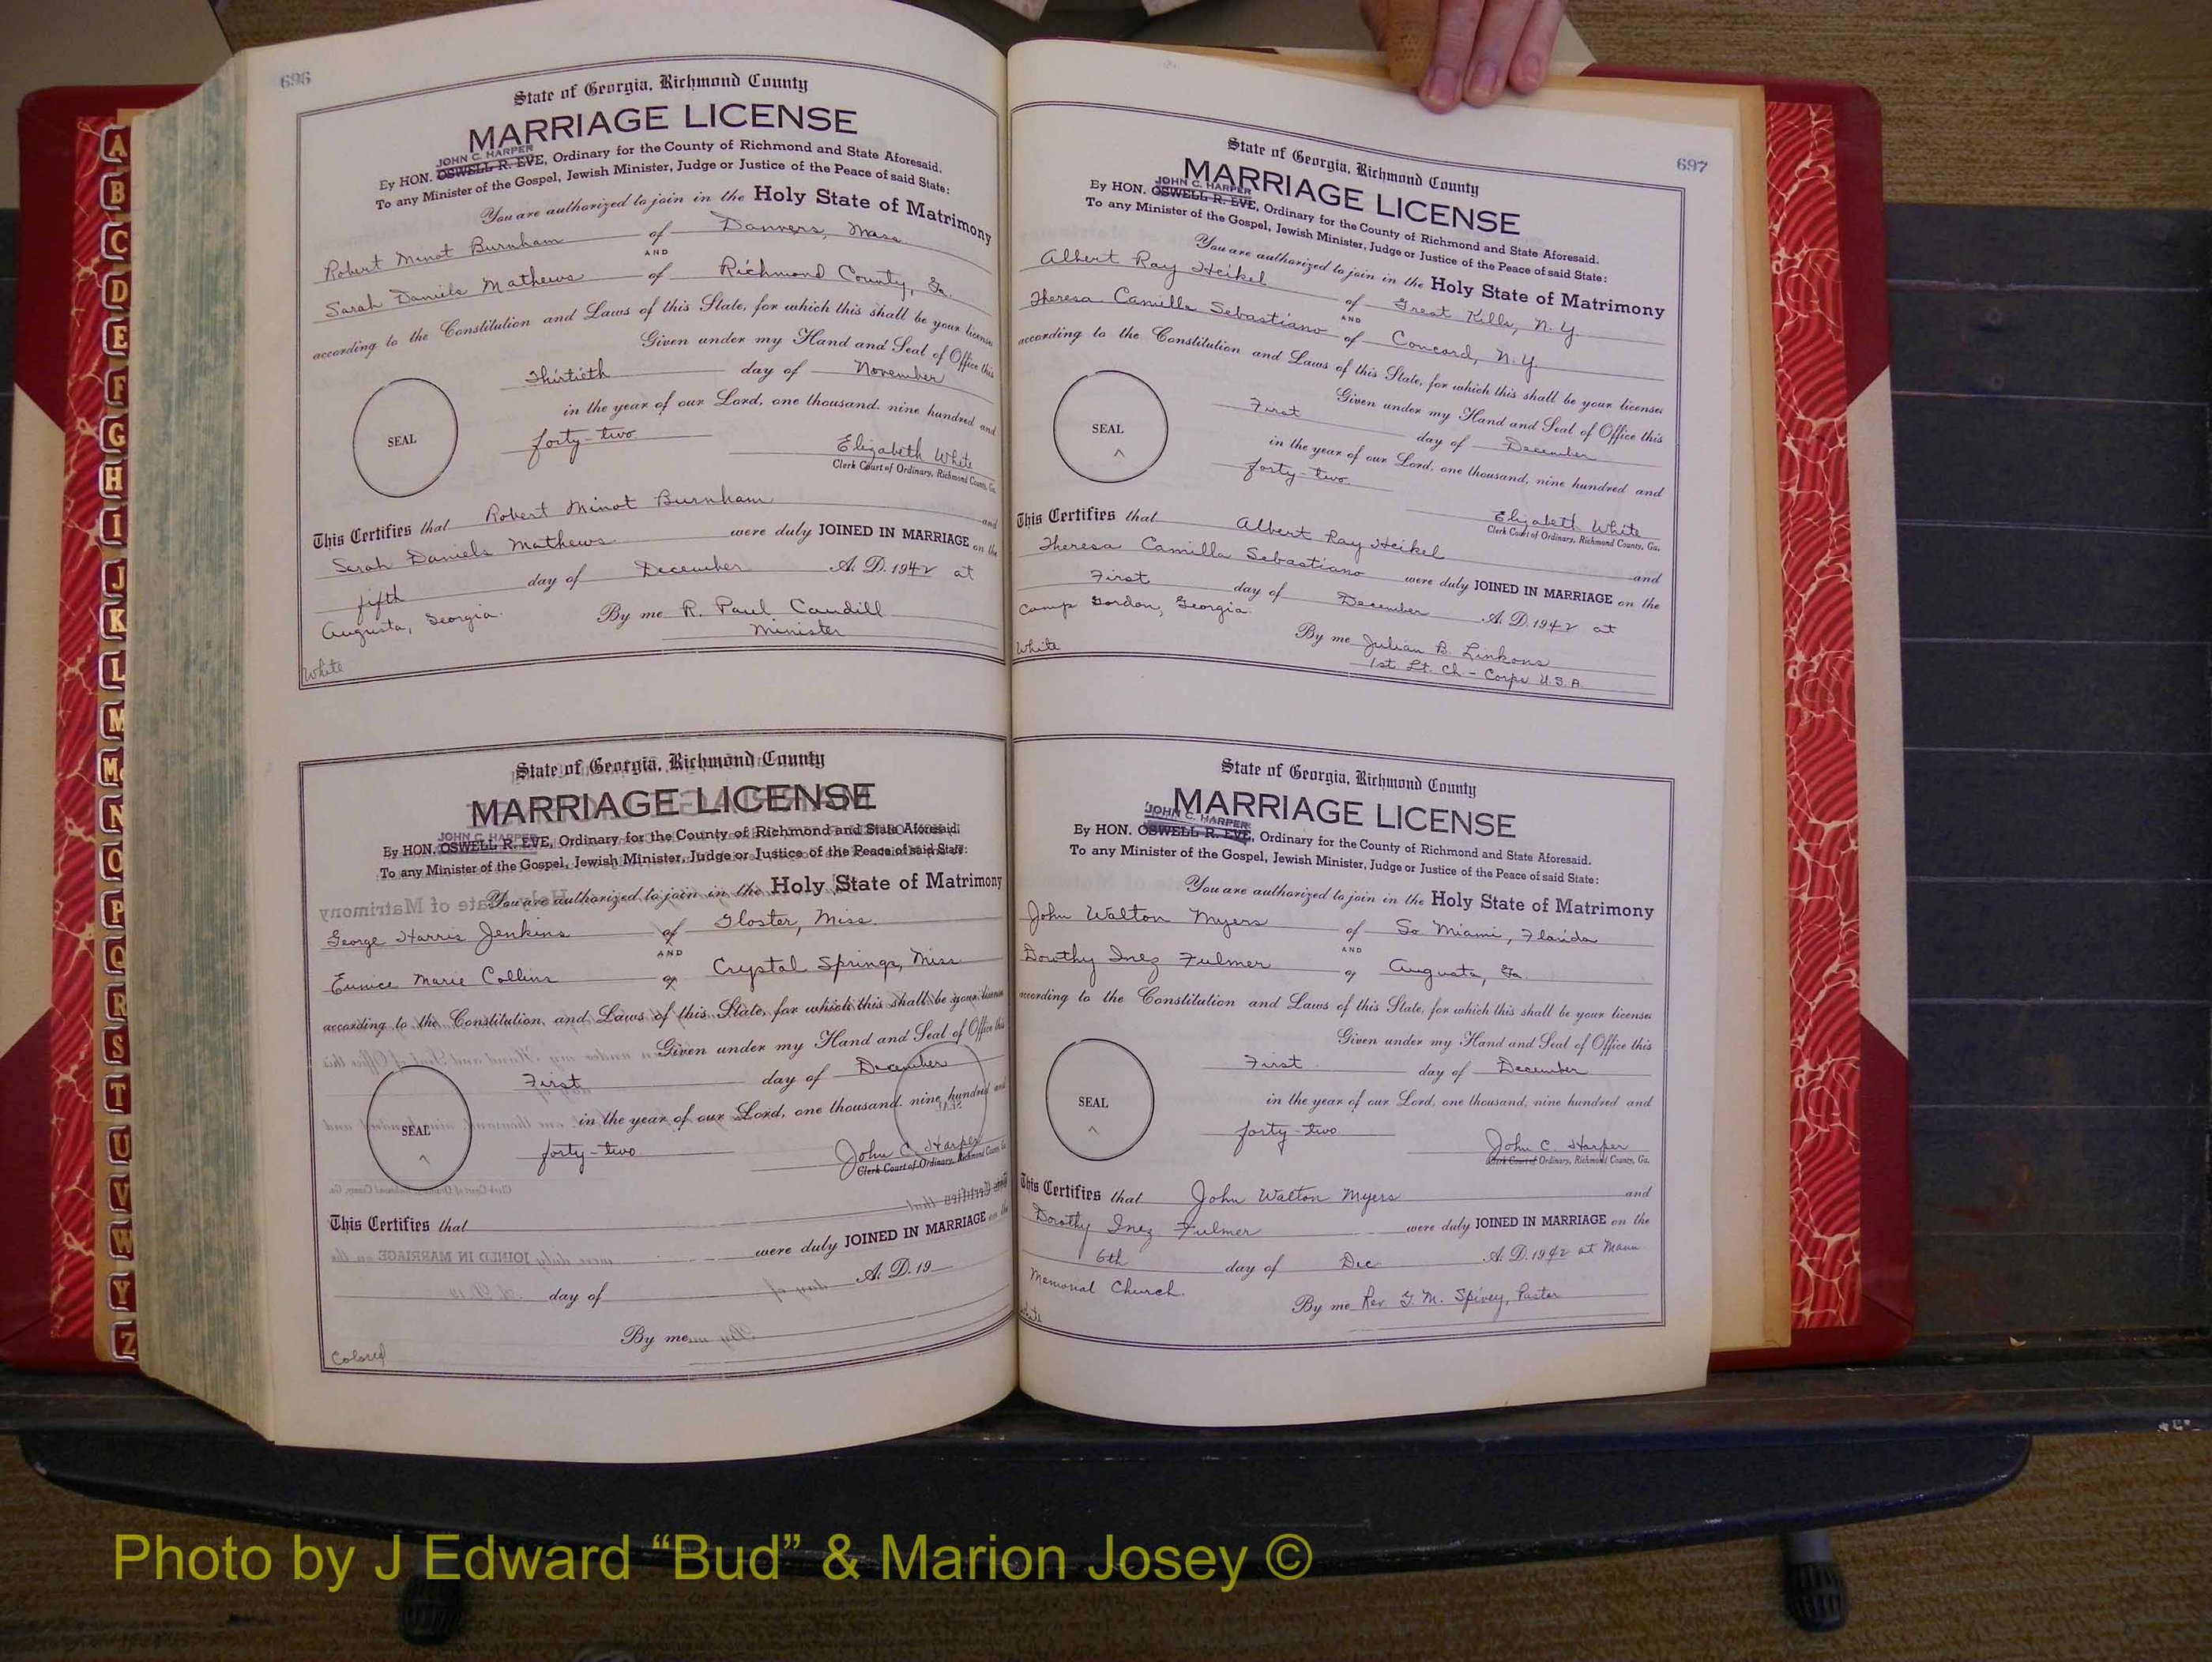 696
State of Georgia, Richmond County
MARRIAGE LICENSE
JOHN C. HARPER
By HON. OSWELL R. EVE, Ordinary for the County of Richmond and State Aforesaid.
To any Minister of the Gospel, Jewish Minister, Judge or Justice of the Peace of said State:
You are authorized to join in the Holy State of Matrimony
Robert Minot Burnham of Danvers, Mass
AND
Sarah Daniels Mathews of Richmond County, Ga.
according to the Constitution and Laws of this State, for which this shall be your license
Given under my Hand and Seal of Office this
Thirtieth day of November
in the year of our Lord, one thousand, nine hundred and
SEAL
forty-two
Elizabeth White
Clerk Court of Ordinary, Richmond County, Ga.
This Certifies that Robert Minot Burnham and
Sarah Daniels Mathews were duly JOINED IN MARRIAGE on the
fifth day of December A. D. 1942 at
Augusta, Georgia. By me R. Paul Caudill
Minister
White
State of Georgia, Richmond County
MARRIAGE LICENSE
JOHN C. HARPER
By HON. OSWELL R. EVE, Ordinary for the County of Richmond and State Aforesaid.
To any Minister of the Gospel, Jewish Minister, Judge or Justice of the Peace of said State:
You are authorized to join in the Holy State of Matrimony
George Harris Jenkins of Gloster, Miss.
AND
Eunice Marie Collins of Crystal Springs, Miss
according to the Constitution and Laws of this State, for which this shall be your license
Given under my Hand and Seal of Office this
First day of December
in the year of our Lord, one thousand, nine hundred and
SEAL
forty-two
John C. Harper
Clerk Court of Ordinary, Richmond County, Ga.
This Certifies that
were duly JOINED IN MARRIAGE on the
day of A. D. 19
By me
Colored
697
State of Georgia, Richmond County
MARRIAGE LICENSE
JOHN C. HARPER
By HON. OSWELL R. EVE, Ordinary for the County of Richmond and State Aforesaid.
To any Minister of the Gospel, Jewish Minister, Judge or Justice of the Peace of said State:
You are authorized to join in the Holy State of Matrimony
Albert Ray Heikel of Great Kills, N.Y.
AND
Theresa Camilla Sebastiano of Concord, N.Y.
according to the Constitution and Laws of this State, for which this shall be your license
Given under my Hand and Seal of Office this
First day of December
SEAL
in the year of our Lord, one thousand, nine hundred and
forty-two.
Elizabeth White
Clerk Court of Ordinary, Richmond County, Ga.
This Certifies that Albert Ray Heikel and
Theresa Camilla Sebastiano were duly JOINED IN MARRIAGE on the
First day of December A. D. 1942 at
Camp Gordon, Georgia.
By me Julian B. Linkous
1st Lt. Ch - Corps U.S.A.
White
State of Georgia, Richmond County
MARRIAGE LICENSE
JOHN C. HARPER
By HON. OSWELL R. EVE, Ordinary for the County of Richmond and State Aforesaid.
To any Minister of the Gospel, Jewish Minister, Judge or Justice of the Peace of said State:
You are authorized to join in the Holy State of Matrimony
John Walton Myers of So Miami, Florida
AND
Dorothy Inez Fulmer of Augusta, Ga.
according to the Constitution and Laws of this State, for which this shall be your license
Given under my Hand and Seal of Office this
First day of December
SEAL
in the year of our Lord, one thousand, nine hundred and
forty-two.
John C. Harper
Clerk Court of Ordinary, Richmond County, Ga.
This Certifies that John Walton Myers and
Dorothy Inez Fulmer were duly JOINED IN MARRIAGE on the
6th day of Dec A. D. 1942 at Mann
Memorial Church.
By me Rev. G. M. Spivey, Pastor
White
A
B
C
D
E
F
G
H
I
J
K
L
M
Mc
N
O
P
Q
R
S
T
U
V
W
Y
Z
Photo by J Edward “Bud” & Marion Josey ©